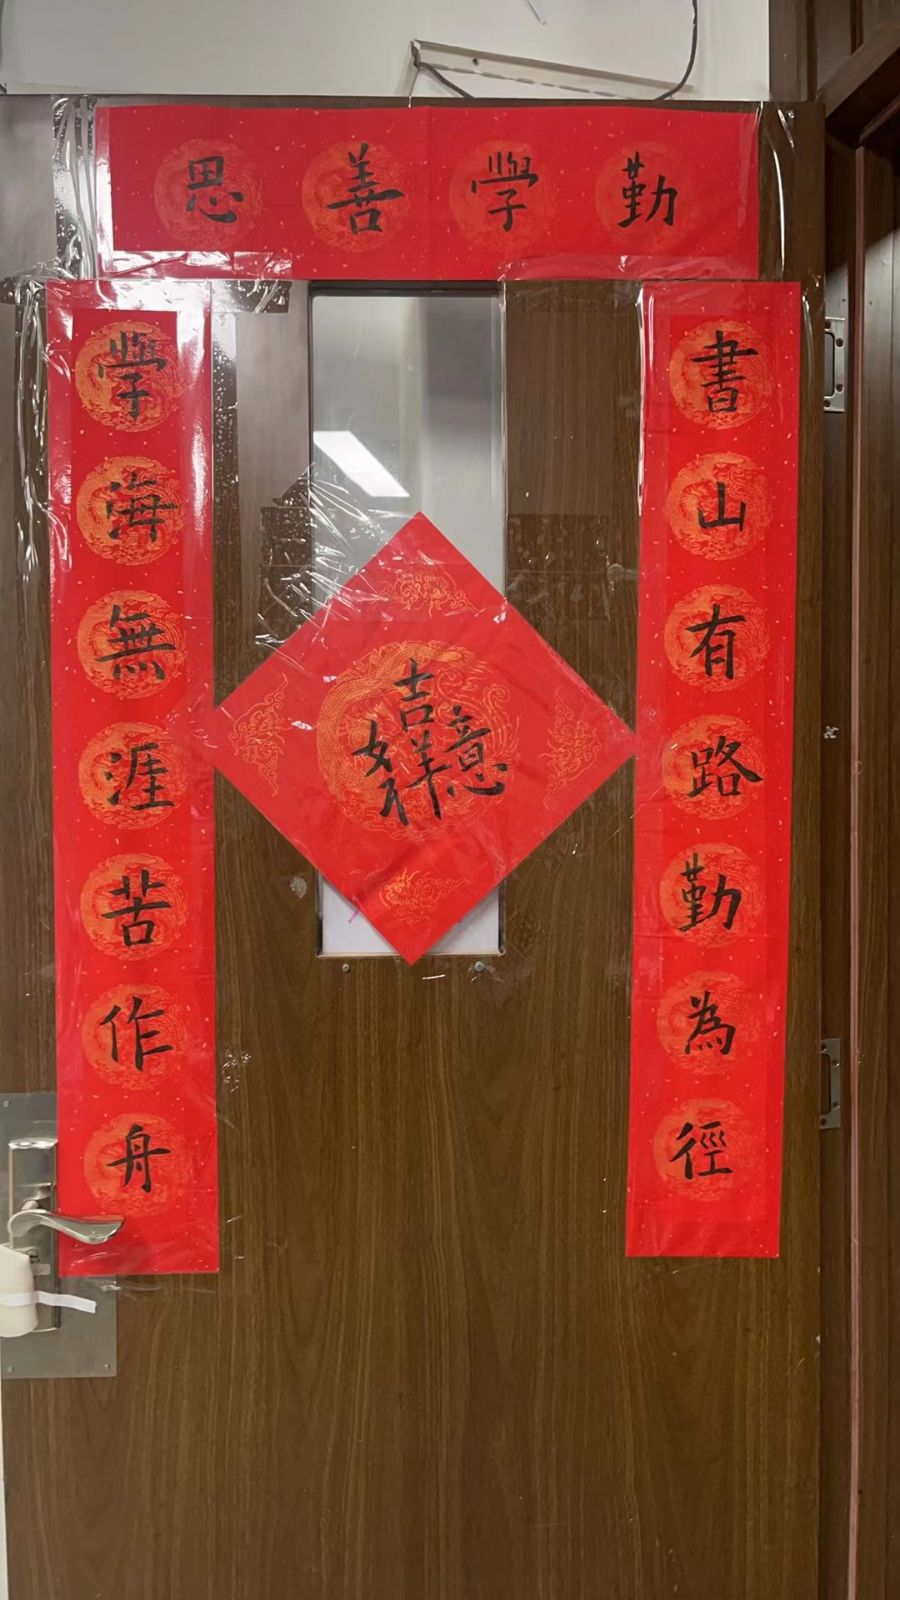 勤學善思
書山有路勤為徑
學海無涯苦作舟
吉祥如意